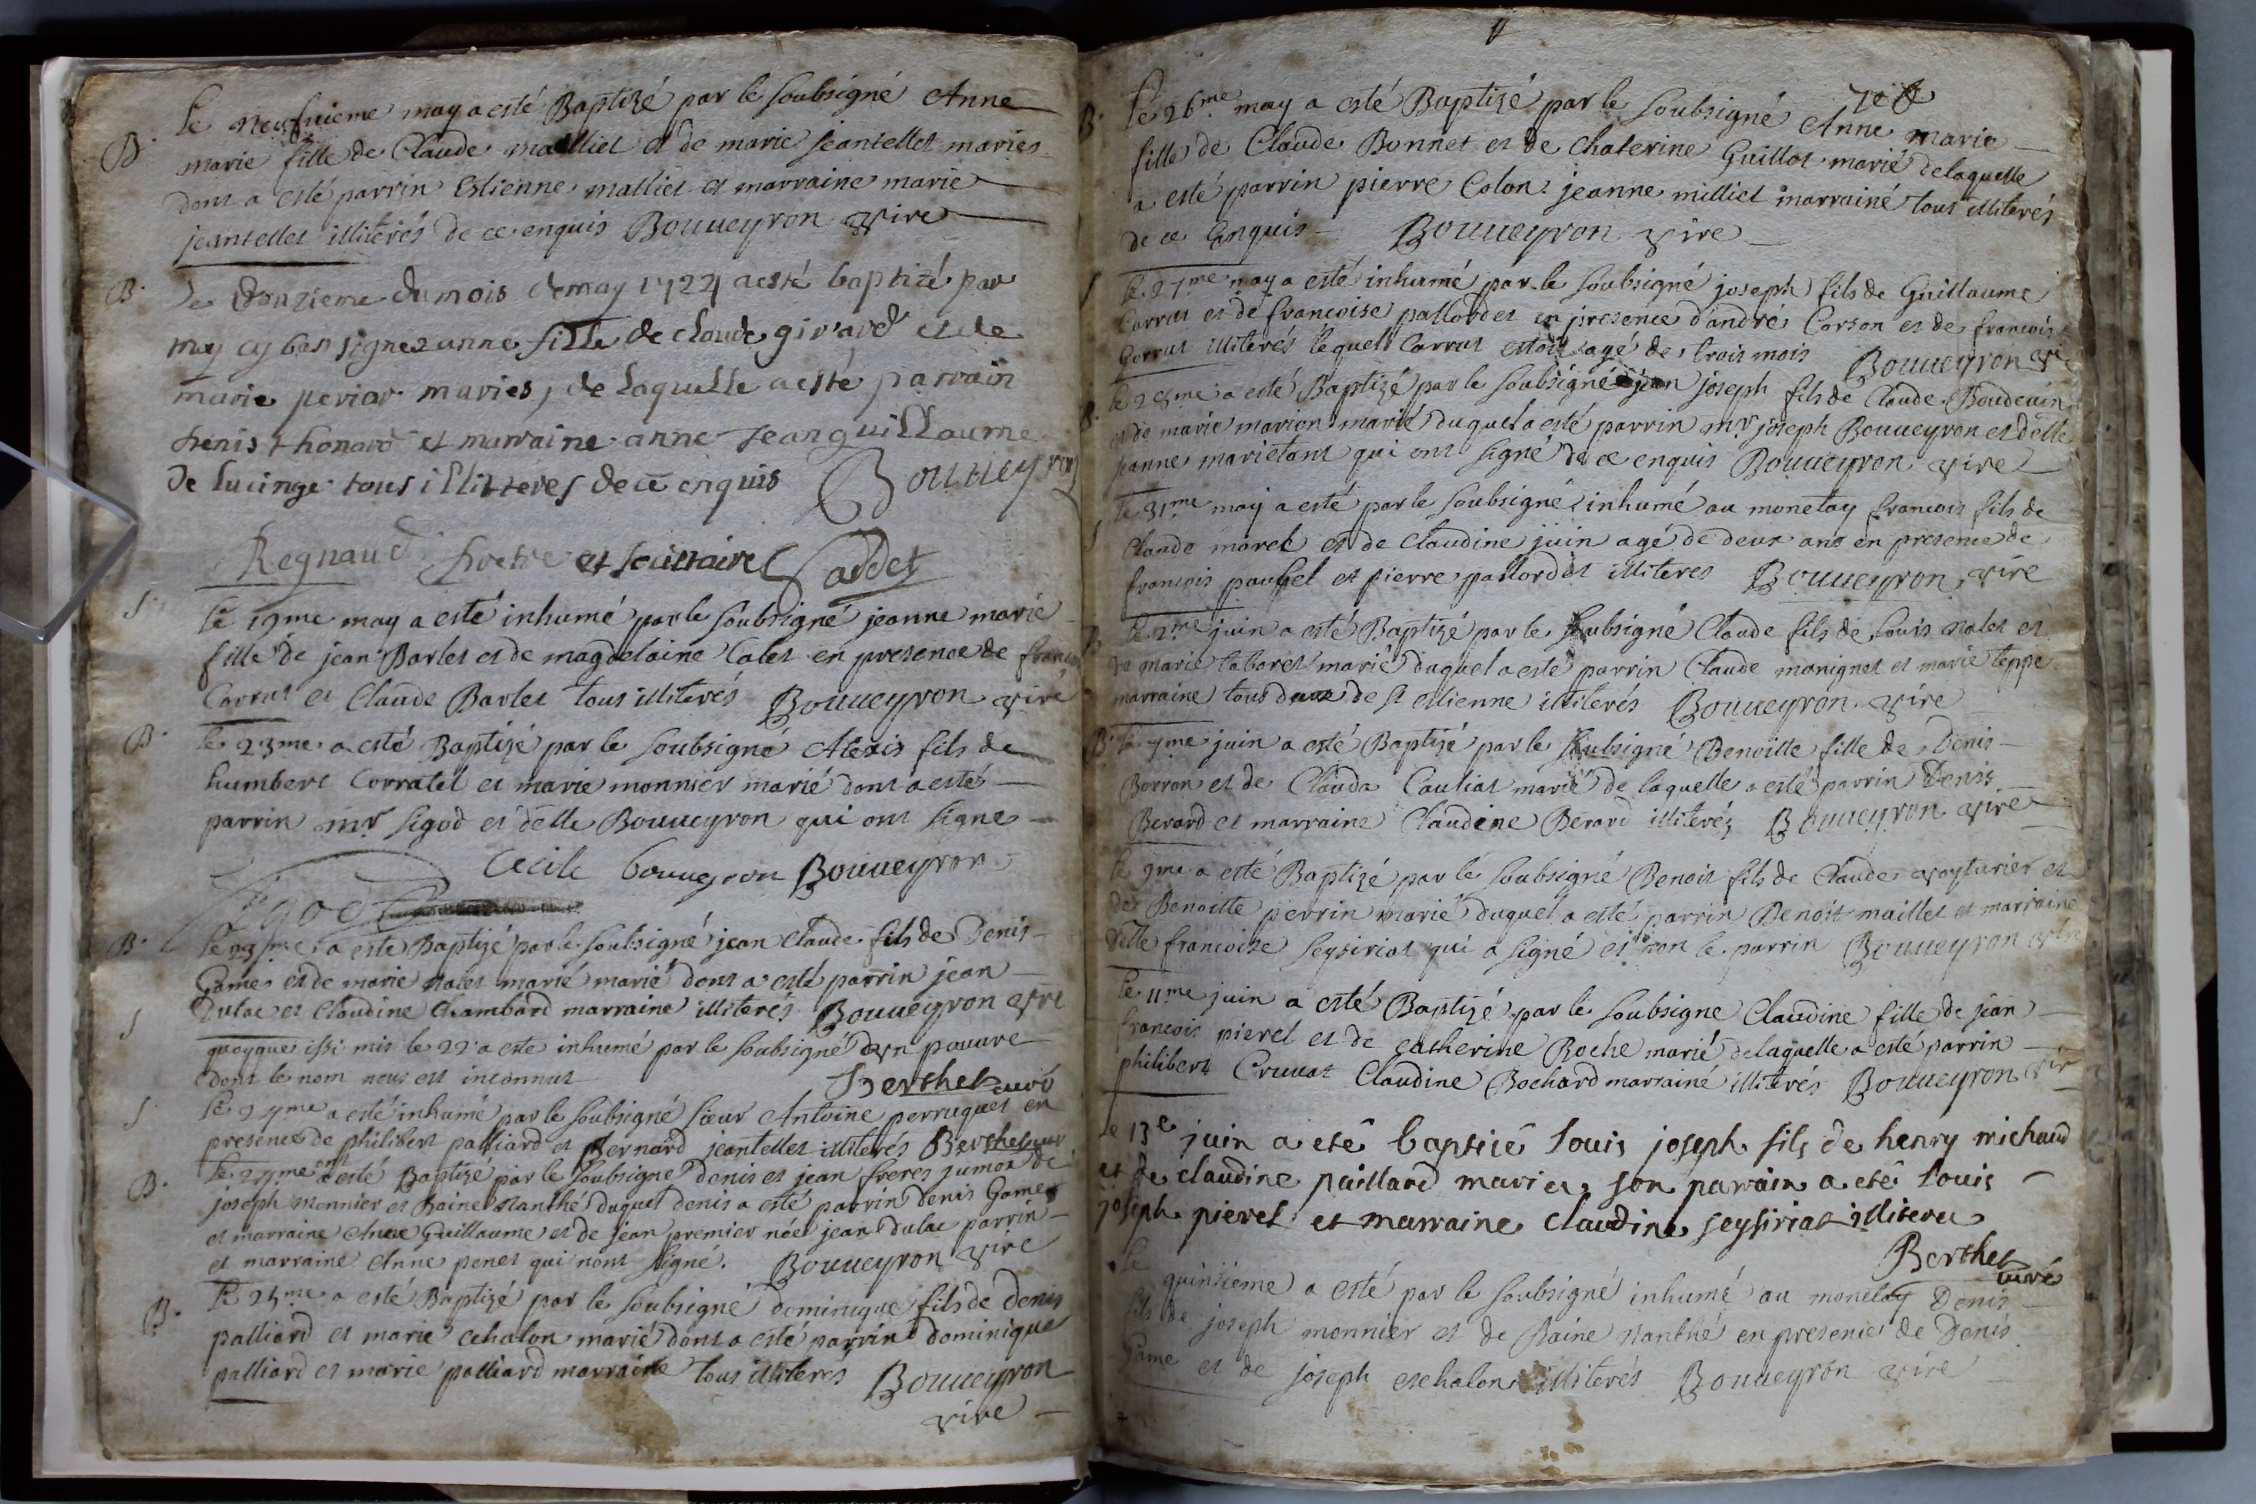 Le neufvieme may a esté Baptizé par le soubsigné Anne
B. marie fille de Claude malliet et de marie jeantellet mariés
dont a esté parrin Estienne malliet et marraine marie
jeantellet illiterés de ce enquis Bouueyron vire
B. Le douzieme du mois de may 1724 a esté baptizé par
moy cy bas signez anne fille de claude girard et de
marie perior maries, de laquelle a esté parrain
thenis thonard et marraine anne jean guillaume
de lucinge tous illitteres de ce enquis Bouueyron
Regnaud pretre et secretaire Caddet
S. Le 19me may a esté inhumé par le soubsigné jeanne marie
fille de jean Barlet et de magdelaine Calet en presence de francois
Corrat et Claude Barlet tous illiterés Bouueyron vire
B. Le 23me a esté Baptizé par le soubsigné Alexis fils de
humbert Corratel et marie monnier marié dont a esté
parrin mr sigod et delle Bouueyron qui ont signe
Cecile bouueyron Bouueyron
Sigod
B. Le 23me a este Baptizé par le soubsigné jean Claude fils de Denis
Game et de marie nalet marié marié dont a esté parrin jean
Dulac et Claudine Chambard marraine illiterés Bouueyron vire
S quoyque issi mis le 22 a este inhumé par le soubsigné un pauure
dont le nom nous est inconnut Berthet curé
S. Le a esté inhumé par le soubsigné sieur Antoine perruquet en
presence de philibert palliard et Bernard jeantellet illiterés Berthet curé
B. Le a esté Baptizé par le soubsigné denis et jean freres jumox de
joseph monnier et Raine nanthé duquel denis a esté parrin denis Game
et marraine Anne Guillaume et de jean premier néé jean dulac parrin
et marraine Anne penet qui nont signé. Bouueyron vire
B. Le 25me a esté Baptizé par le soubsigné dominique fils de Denis
palliard et marie echalon marié dont a esté parrin dominique
palliard et marie palliard marraine tous illiterés Bouueyron
vire
B. Le 26me may a esté Baptizé par le soubsigné Anne marie
fille de Claude Bonnet et de Chaterine Guillot marié delaquelle
a esté parrin pierre Colon jeanne milliet marrainé tous illiterés
de ce enquis Bouueyron vire
S Le 27me may a esté inhumé par le soubsigné joseph fils de Guillaume
Corrat et de francoise pallordet en presence d'andré Corson et de francois
Gorrat illiterés lequel Corrat estoit agé de trois mois Bouueyron vire
B. Le 28me a esté Baptizé par le soubsigné jean joseph fils de Claude Boudeuin
et de marie marion marié duquel a esté parrin mr joseph Bouueyron et delle
jeanne marietant qui ont signé de ce enquis Bouueyron vire
S Le 31me may a esté par le soubsigné inhumé au monetay francois fils de
Claude morel et de Claudine juin agé de deux ans en presence de
francois pauget et pierre pallordet illiteres Bouueyron vire
B Le 2me juin a esté Baptizé par le soubsigné Claude fils de Louis nalet et
de marie taboret marié duquel a esté parrin Claude monignet et marie teppe
marraine tous deux de st estienne illiterés Bouueyron vire
B. Le 7me juin a esté Baptizé par le soubsigné Benoitte fille de Denis
Borron et de Clauda Cautiat marié de laquelle a esté parrin Denis
Berard et marraine Claudine Berard illiterés Bouueyron vire
Le 9me a esté Baptizé par le soubsigné Benoit fils de Claude voyturier et
de Benoitte perrin marié duquel a esté parrin Benoit maillet et marraine
delle francoise seysiriat qui a signé et non le parrin Bouueyron vire
Le 11me juin a esté Baptizé par le soubsigné Claudine fille de jean
francois pieret et de catherine Roche marié delaquelle a esté parrin
philibert Cruuat Claudine Bochard marrainé illiterés Bouueyron vire
le 13e juin a eté baptizé louis joseph fils de henry michaud
et de claudine paillard mariea, son parrain a eté louis
joseph pieret et marraine claudine seysiriat illiterea
Berthet
curé
Le quinsieme a esté par le soubsigné inhumé au monetay Denis
fils de joseph monnier et de Raine nanthé en presence de Denis
Game et de joseph echalon illiterés Bouueyron vire